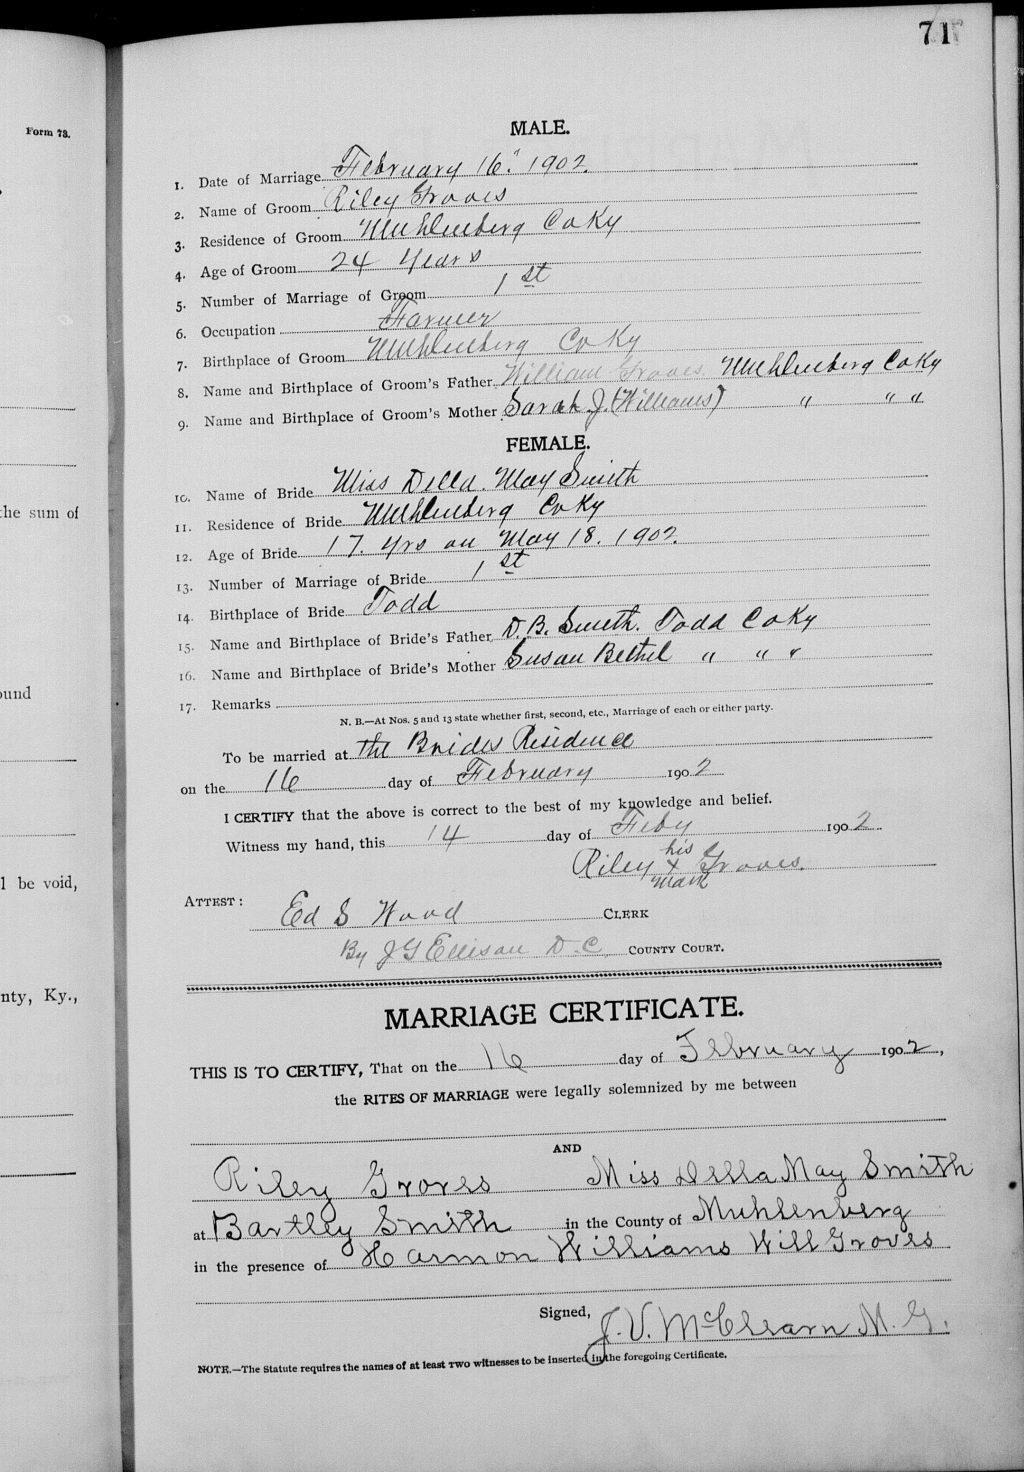 71
Form 73.
MALE.
1. Date of Marriage February 16" 1902.
2. Name of Groom Riley Groves
3. Residence of Groom Muhlenberg Co Ky
4. Age of Groom 24 Years
5. Number of Marriage of Groom 1st
6. Occupation Farmer
7. Birthplace of Groom Muhlenberg Co Ky
8. Name and Birthplace of Groom's Father William Groves. Muhlenberg Co Ky
9. Name and Birthplace of Groom's Mother Sarah J. (Williams) " " "
FEMALE.
10. Name of Bride Miss Della May Smith
11. Residence of Bride Muhlenberg Co Ky
12. Age of Bride 17. yrs on May 18. 1902.
13. Number of Marriage of Bride 1st
14. Birthplace of Bride Todd
15. Name and Birthplace of Bride's Father D. B. Smith. Todd Co Ky
16. Name and Birthplace of Bride's Mother Susan Bethel " " "
17. Remarks
N. B.—At Nos. 5 and 13 state whether first, second, etc., Marriage of each or either party.
To be married at the Brides Residence
on the 16 day of February 1902
I CERTIFY that the above is correct to the best of my knowledge and belief.
Witness my hand, this 14 day of Feby 1902.
his
Riley x Groves.
mark
ATTEST:
Ed S Wood CLERK
By J G Ellison D. C. COUNTY COURT.
MARRIAGE CERTIFICATE.
THIS IS TO CERTIFY, That on the 16 day of February 1902,
the RITES OF MARRIAGE were legally solemnized by me between
AND
Riley Groves Miss Della May Smith
at Bartley Smith in the County of Muhlenberg
in the presence of Harmon Williams Will Groves
Signed,
J. V. McClearn M. G.
NOTE.—The Statute requires the names of at least TWO witnesses to be inserted in the foregoing Certificate.
the sum of
ound
l be void,
nty, Ky.,